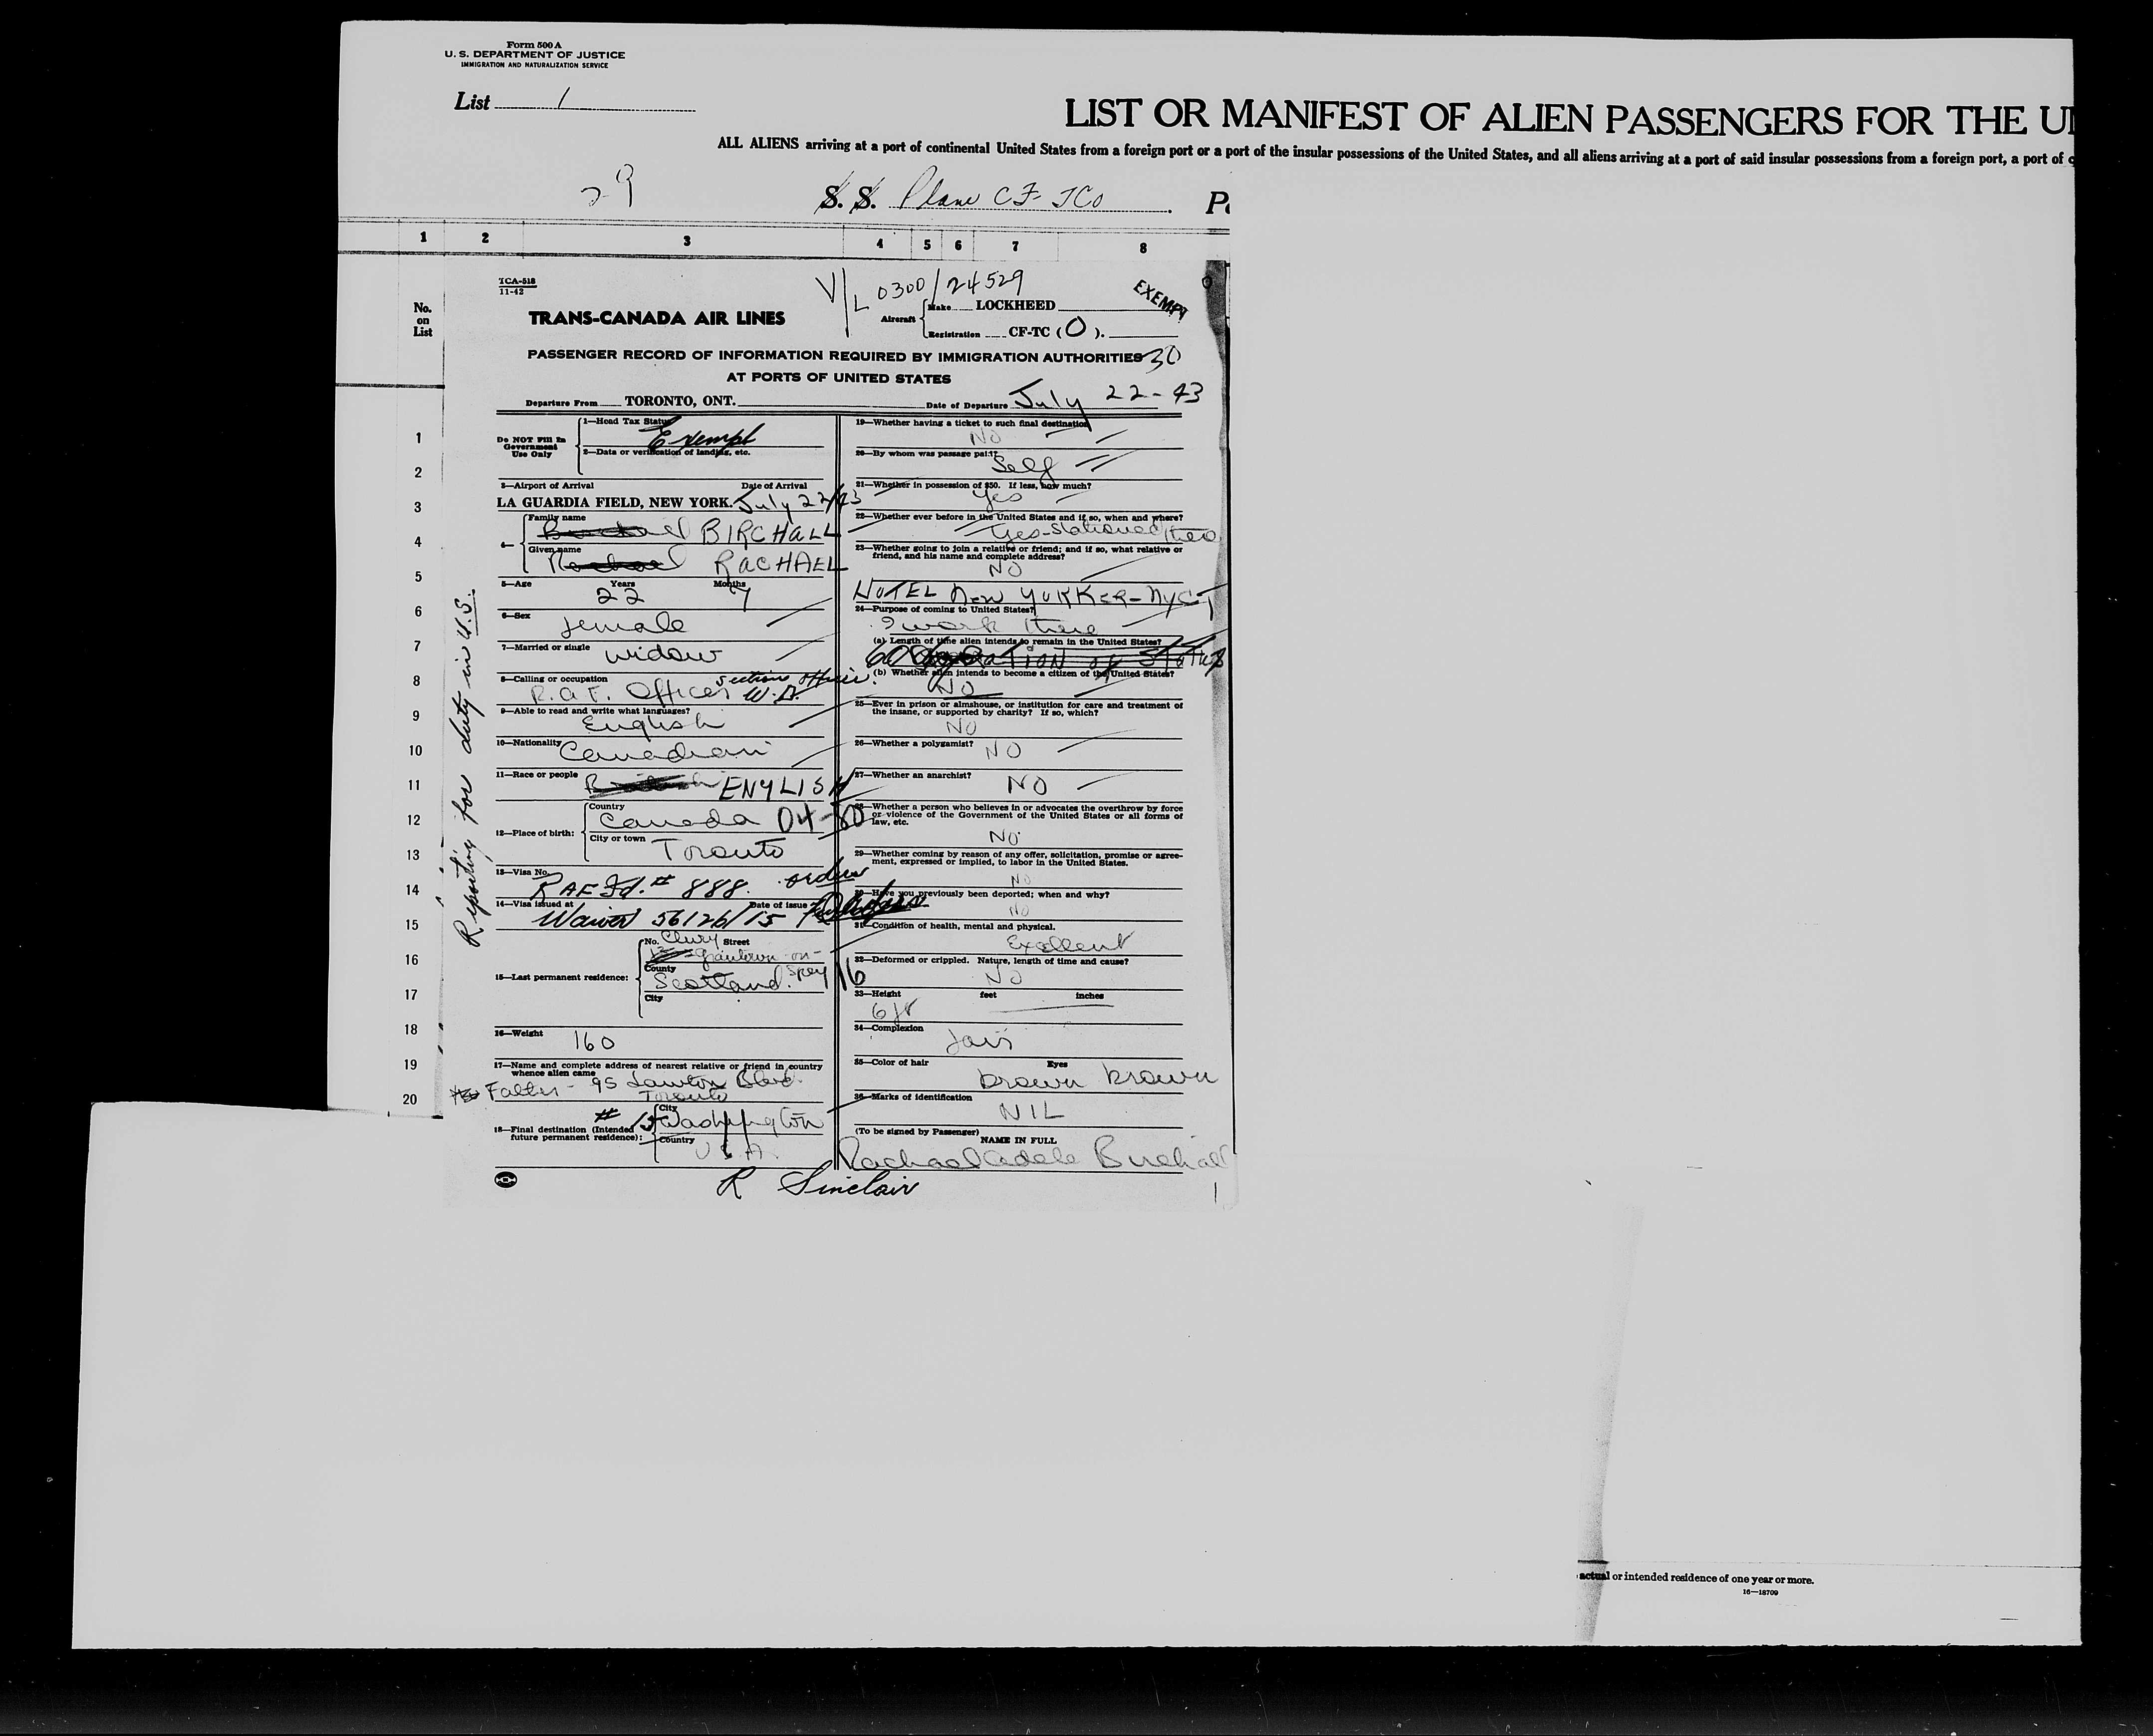 Form 500 A
U. S. DEPARTMENT OF JUSTICE
IMMIGRATION AND NATURALIZATION SERVICE
List 1
LIST OR MANIFEST OF ALIEN PASSENGERS FOR THE
ALL ALIENS arriving at a port of continental United States from a foreign port or a port of the insular possessions of the United States, and all aliens arriving at a port of said insular possessions from a foreign port, a port of
S. S. Plane CF-TCO
1 2 3 4 5 6 7 8
No. on List
1
2
3
4
5
6
7
8
9
10
11
12
13
14
15
16
17
18
19
20
Reporting for duty in U.S.
TCA-518
11-42
V/L 0300/24529
EXEMPT
TRANS-CANADA AIR LINES
Aircraft
Make LOCKHEED
Registration CF-TC (O).
PASSENGER RECORD OF INFORMATION REQUIRED BY IMMIGRATION AUTHORITIES 30
AT PORTS OF UNITED STATES
Departure From TORONTO, ONT. Date of Departure July 22-43
Do NOT Fill In Government Use Only
1—Head Tax Status
Exempt
2—Data or verification of landing, etc.
3—Airport of Arrival Date of Arrival
LA GUARDIA FIELD, NEW YORK. July 22/43
4—
Family name
BIRCHALL
Given name
RACHAEL
5—Age Years Months
22 7
6—Sex
female
7—Married or single
widow
8—Calling or occupation
R.A.F. Officer section officer W.D.
9—Able to read and write what languages?
English
10—Nationality
Canadian
11—Race or people
ENYLISH
12—Place of birth:
Country
Canada 04-80
City or town
Toronto
13—Visa No.
RAF Id. # 888. orders
14—Visa issued at Date of issue
Waiver 56126/15
15—Last permanent residence:
No. Street
-on-
County Spey
Scotland. 16
City
16—Weight
160
17—Name and complete address of nearest relative or friend in country whence alien came
Father - 95 Lawton Blvd.
Toronto
18—Final destination (Intended future permanent residence):
City
Washington
Country
U.S.A.
19—Whether having a ticket to such final destination
NO
20—By whom was passage paid?
Self
21—Whether in possession of $50. If less, how much?
Yes
22—Whether ever before in the United States and if so, when and where?
Yes-Stationed there
23—Whether going to join a relative or friend; and if so, what relative or friend, and his name and complete address?
NO
HOTEL NEW YORKER-NYC
24—Purpose of coming to United States?
I work there
(a) Length of time alien intends to remain in the United States?
(b) Whether alien intends to become a citizen of the United States?
NO
25—Ever in prison or almshouse, or institution for care and treatment of the insane, or supported by charity? If so, which?
NO
26—Whether a polygamist?
NO
27—Whether an anarchist?
NO
28—Whether a person who believes in or advocates the overthrow by force or violence of the Government of the United States or all forms of law, etc.
NO
29—Whether coming by reason of any offer, solicitation, promise or agreement, expressed or implied, to labor in the United States.
NO
30—Have you previously been deported; when and why?
NO
31—Condition of health, mental and physical.
Excellent
32—Deformed or crippled. Nature, length of time and cause?
NO
33—Height feet inches
6ft
34—Complexion
fair
35—Color of hair Eyes
brown brown
36—Marks of identification
NIL
(To be signed by Passenger)
NAME IN FULL
Rachael Adele Birchall
R Sinclair
actual or intended residence of one year or more.
16—18709